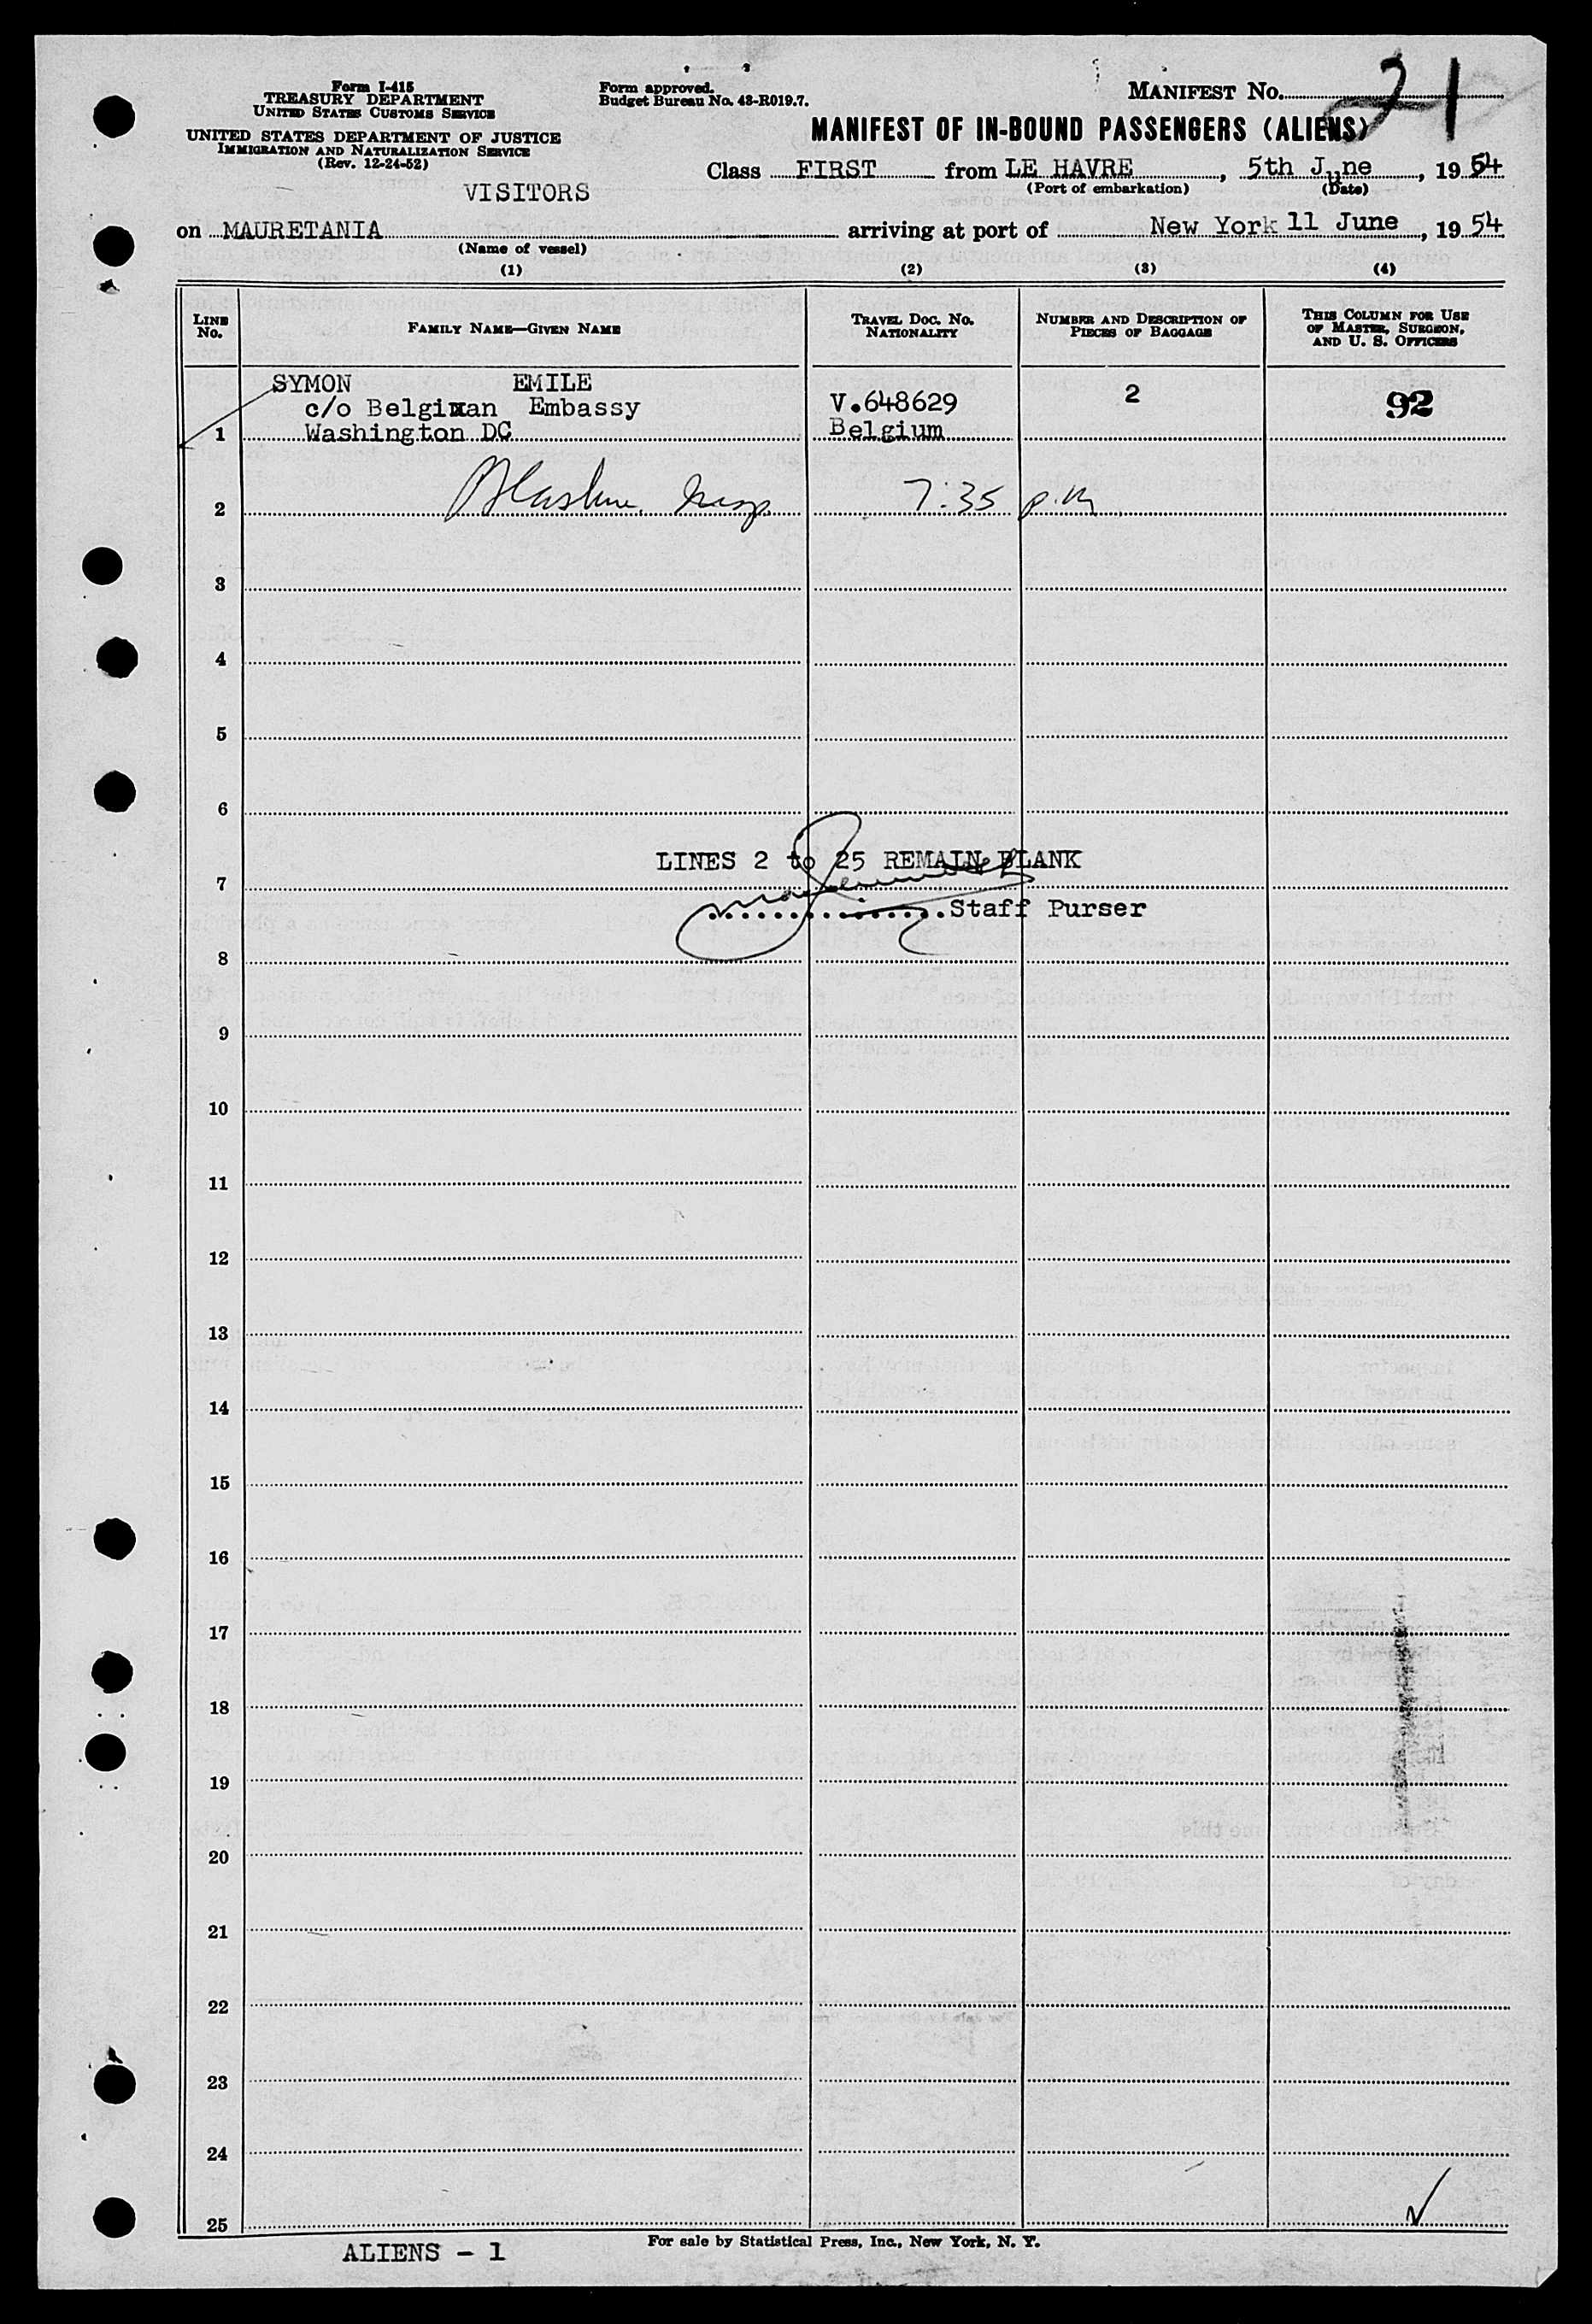 Form I-415
TREASURY DEPARTMENT
UNITED STATES CUSTOMS SERVICE
UNITED STATES DEPARTMENT OF JUSTICE
IMMIGRATION AND NATURALIZATION SERVICE
(Rev. 12-24-52)
Form approved.
Budget Bureau No. 43-R019.7.
MANIFEST No. 21
MANIFEST OF IN-BOUND PASSENGERS (ALIENS)
Class FIRST from LE HAVRE, 5th June, 1954
(Port of embarkation) (Date)
VISITORS
on MAURETANIA arriving at port of New York 11 June, 1954
(Name of vessel)
(1) (2) (3) (4)
LINE No. FAMILY NAME—GIVEN NAME TRAVEL DOC. No. NATIONALITY NUMBER AND DESCRIPTION OF PIECES OF BAGGAGE THIS COLUMN FOR USE OF MASTER, SURGEON, AND U. S. OFFICERS
SYMON EMILE
c/o Belgixan Embassy V.648629 2 92
1 Washington DC Belgium
2 7:35 p.m
3
4
5
6
LINES 2 to 25 REMAIN BLANK
7
Staff Purser
8
9
10
11
12
13
14
15
16
17
18
19
20
21
22
23
24
25
For sale by Statistical Press, Inc., New York, N. Y.
ALIENS - 1